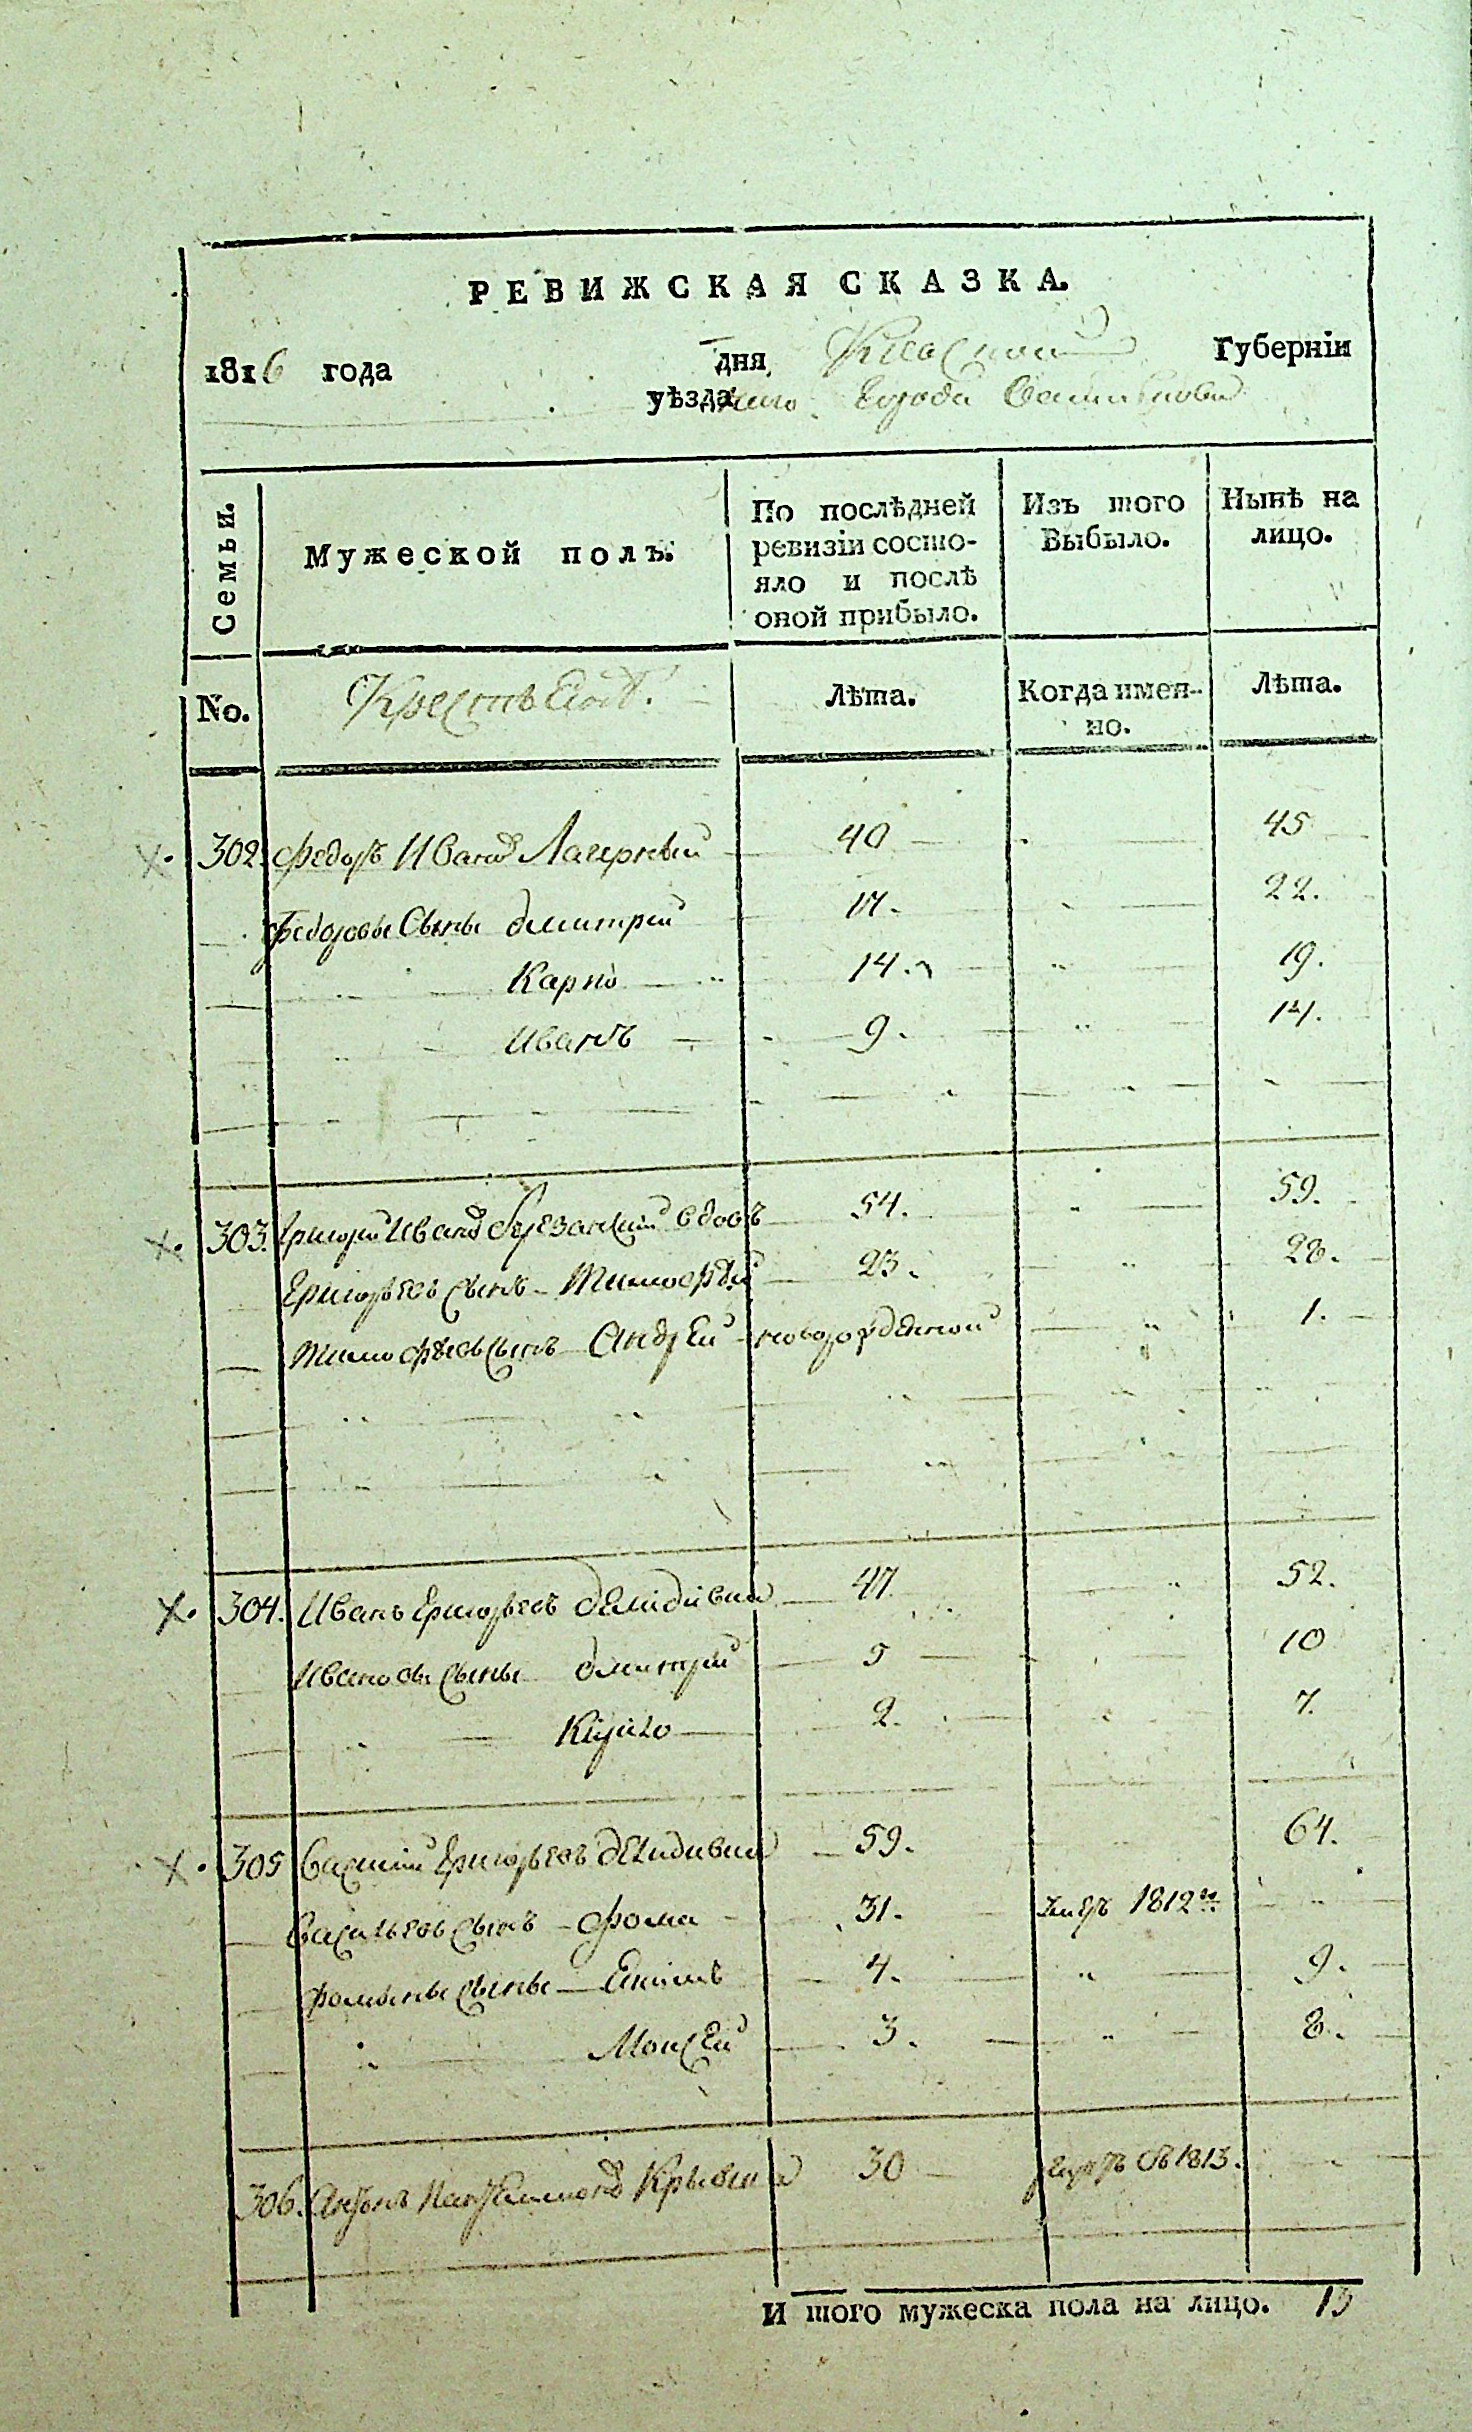 РЕВИЖСКАЯ СКАЗКА.
1816 года дня Киевской Губернїи
уѣзда Города
Семьи.
Мужеской полъ.
По послѣдней ревизїи состо-
яло и послѣ
оной прибыло.
Изъ того
Выбыло.
Нынѣ на
лицо.
No.
Лѣта.
Когда имен-
но.
Лѣта.
302. Федоръ Иванов Лагерный 40 45
Федоровы Сыны Дмитрий 17. 22.
Карпо 14. 19.
Иванъ 9. 14.
303. Григорий Иванов Березанский вдовъ 54. 59.
Григорьевъ сынъ Тимофѣй 23. 28.
Тимофѣевъ сынъ Андрей новорожденной 1.
304. Иванъ Григорьевъ 47 52.
Ивановы сыны Дмитрий 5 10
Кирило 2. 7.
305 Василий Григорьевъ 59. 64.
Васильевъ сынъ Фома 31. умеръ 1812го
Фомины сыны Екимъ 4. 9.
Моисей 3. 8.
306. Антонъ 30 1813.
И того мужеска пола на лицо. 13